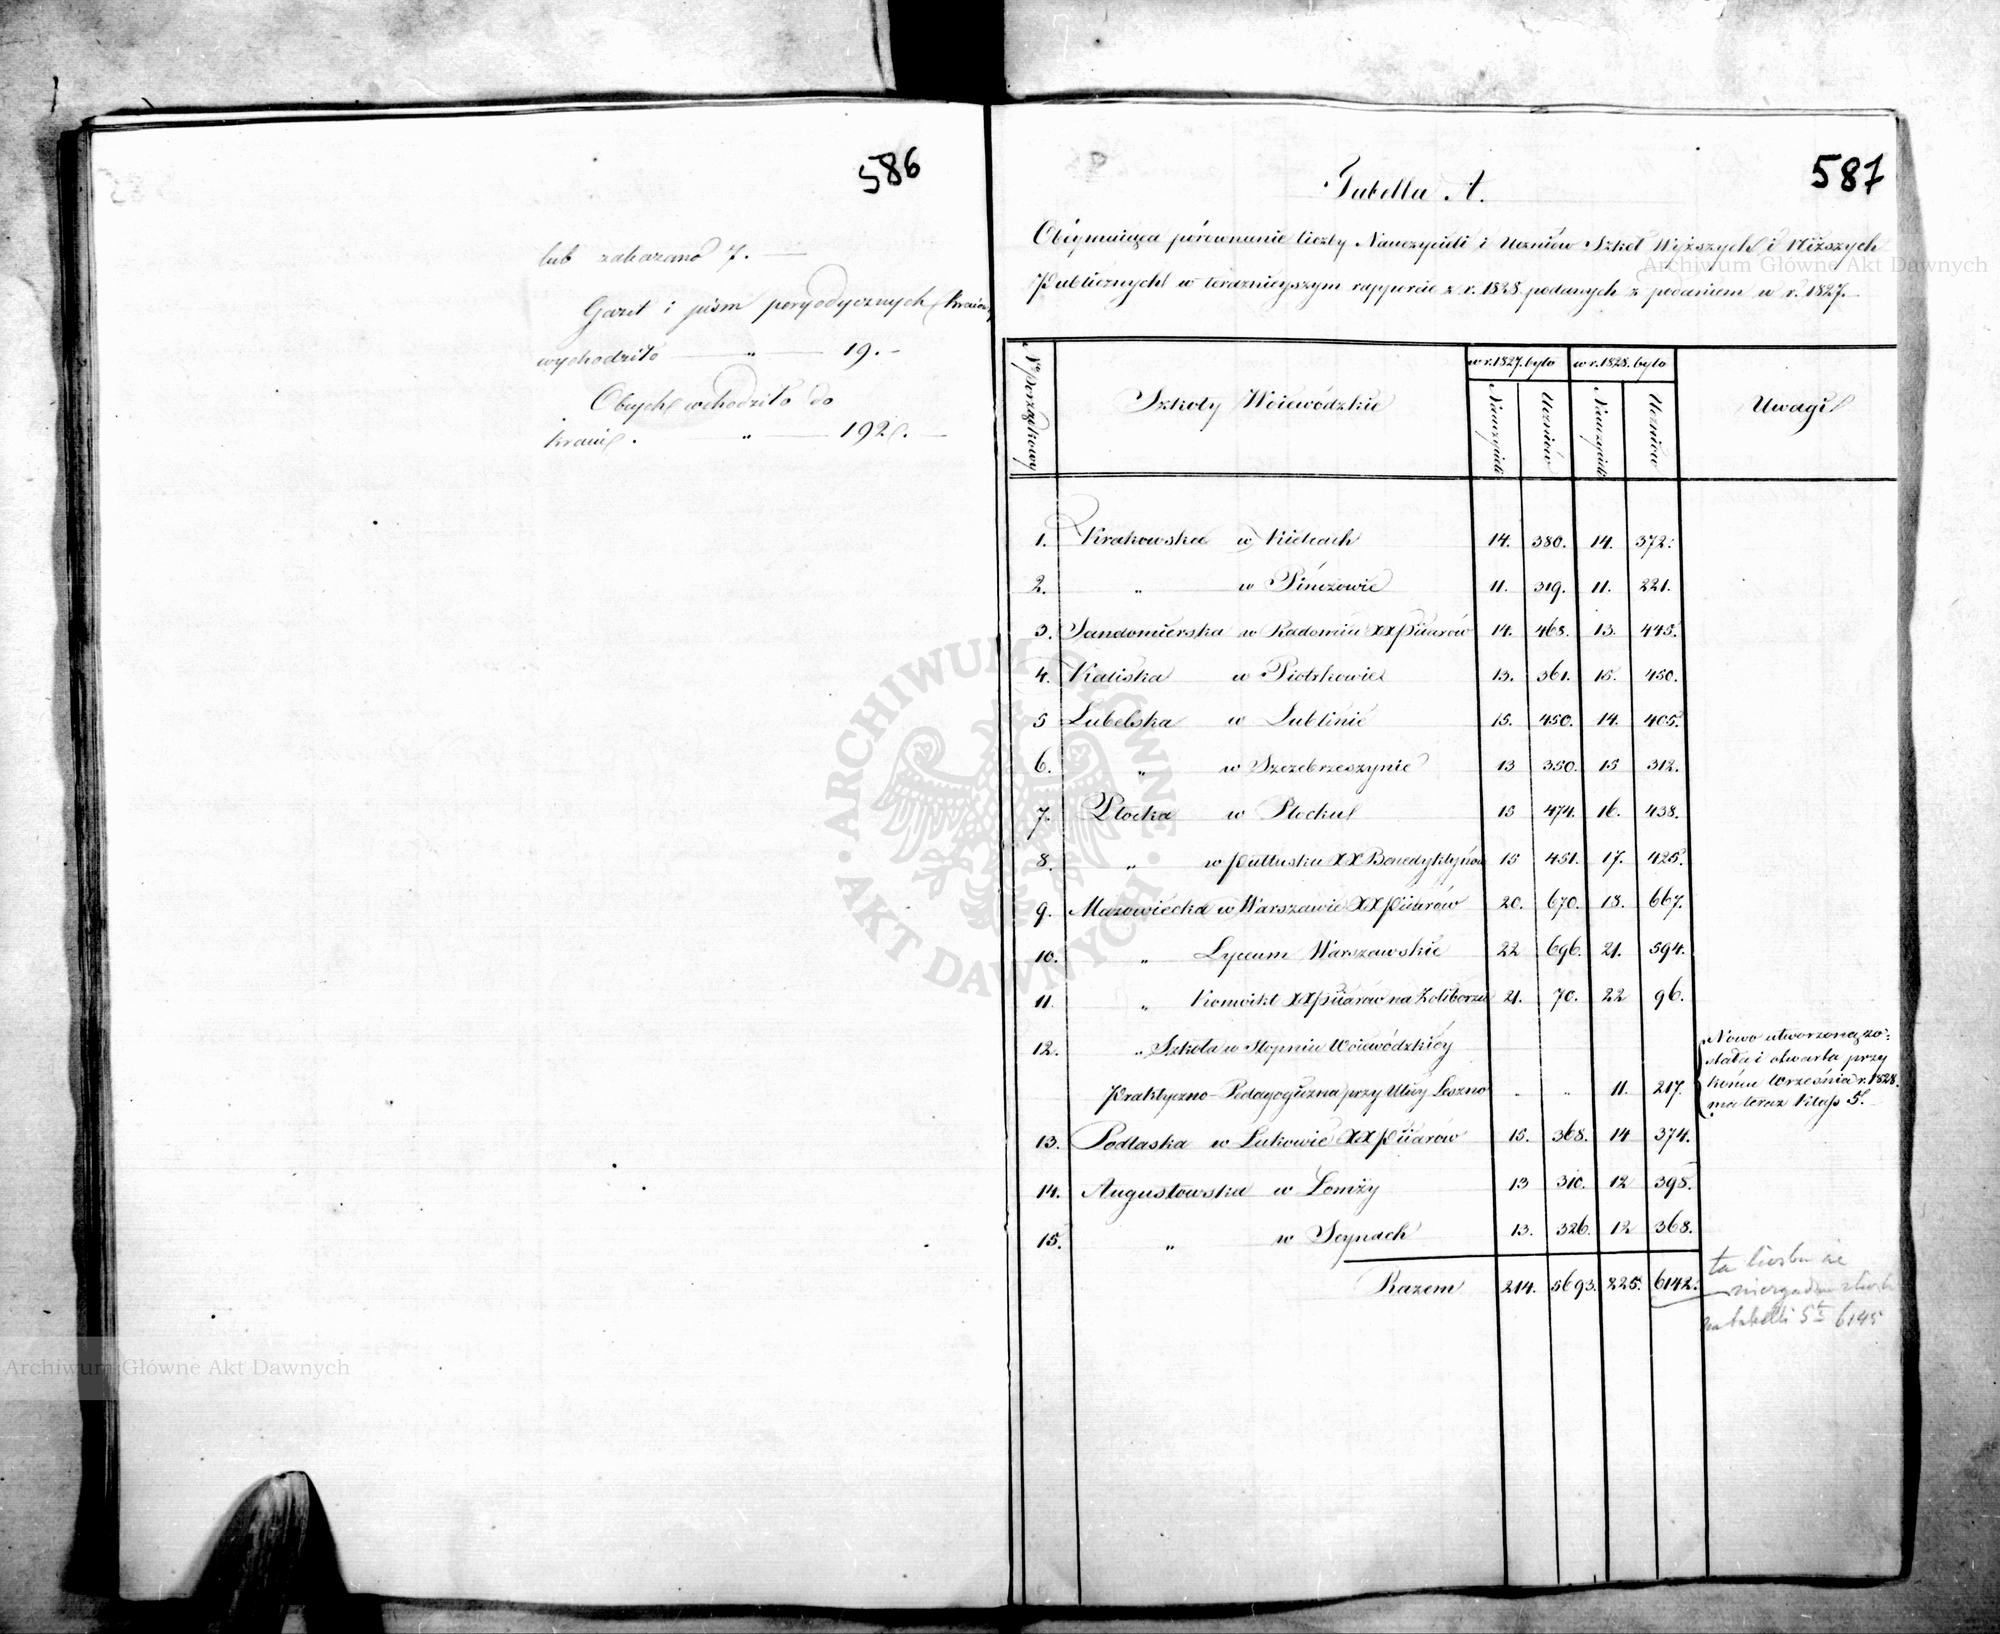 586
lub zakazano 7. —
Gazet i pism peryodycznych krajow.
wychodziło — „ — 19. —
Obcych wchodziło do
kraiu. „ — 192. —
587
Tabella A.
Obeymuiąca porównanie liczby Nauczycieli i Uczniów Szkół Wyższych i Niższych
Publicznych w teraznieyszym rapporcie z r. 1828 podanych z podaniem w r. 1827.
Nr porządkowy | Szkoły Woiewódzkie | w r. 1827. było | w r. 1828. było | Uwagi
Nauczycieli | Uczniów | Nauczycieli | Uczniów
1. Krakowska w Kielcach 14. 380. 14. 372.
2. „ w Pińczowie 11. 319. 11. 221.
3. Sandomierska w Radomiu XX Piiarów 14. 468. 13. 445.
4. Kaliska w Piotrkowie 13. 361. 15. 450.
5 Lubelska w Lublinie 15. 450. 14. 405.
6. „ w Szczebrzeszynie 13 350. 15 312.
7. Płocka w Płocku 15 474. 16. 438.
8. „ w Pułtusku XX Benedyktynów 15 451. 17. 425.
9. Mazowiecka w Warszawie XX Piiarów 20. 670. 18. 667.
10. „ Lyceum Warszawskie 22 696. 21. 594.
11. „ Konwikt XX Piiarów na Żoliborzu 21. 70. 22 96.
12. „ Szkoła w Stopniu Woiewódzkiey
Praktyczno-Pedagogiczna przy Ulicy Leszno „ „ 11. 217.
Nowo utworzoną zo-
stała i otwarta przy
końcu Września r. 1828.
ma teraz klass 5.
13. Podlaska w Łukowie XX Piiarów 15. 368. 14 374.
14. Augustowska w Łomży 13 310. 12 395.
15. „ w Seynach 13. 326. 12 368.
Razem 214. 5693. 225. 6142.
ta liczba się
niezgadza
na tabelli 5tą 6145
ARCHIWUM GŁÓWNE AKT DAWNYCH
Archiwum Główne Akt Dawnych
Archiwum Główne Akt Dawnych